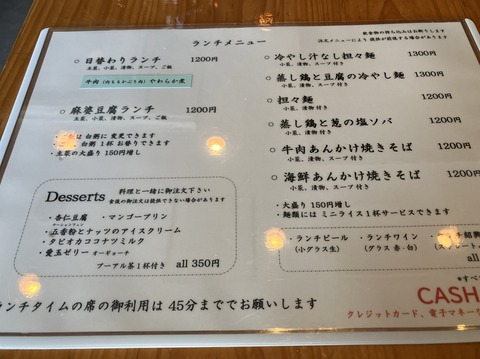 飲食物の持ち込みはお断りします
注文メニューにより提供が前後する場合があります
ランチメニュー
○ 日替わりランチ 1200円
主菜、小菜、漬物、スープ、ご飯
牛肉（内ももかぶり肉）やわらか煮
○ 麻婆豆腐ランチ 1200円
主菜、小菜、漬物、スープ、ご飯
白粥に変更できます
白粥 1杯 お替りできます
・主菜の大盛り 150円増し
○ 冷やし汁なし担々麺 1300円
小菜、漬物、スープ付き
○ 蒸し鶏と豆腐の冷やし麺 1300円
小菜、漬物、スープ付き
○ 担々麺 1200円
小菜、漬物、スープ付き
○ 蒸し鶏と葱の塩ソバ 1200円
小菜、漬物付き
○ 牛肉あんかけ焼きそば 1200円
小菜、漬物、スープ付き
○ 海鮮あんかけ焼きそば 1200円
小菜、漬物、スープ付き
・大盛り 150円増し
・麺類には ミニライス1杯サービスできます
Desserts 料理と一緒に御注文下さい
食後の御注文は提供できない場合があります
・杏仁豆腐 ・マンゴープリン
・五香粉とナッツのアイスクリーム
・タピオカココナツミルク
・愛玉ゼリー オーギョーチ
プーアル茶1杯付き all 350円
・ランチビール
(小グラス生)
・ランチワイン
(グラス 赤・白)
all
ランチタイムの席の御利用は 45分まででお願いします
CASH
クレジットカード、電子マネー